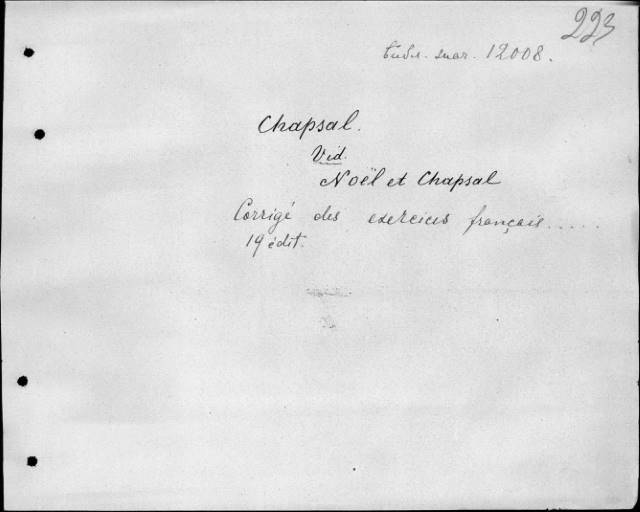 223
Библ. шаг. 12008.
Chapsal.
Vid.
Noël et Chapsal
Corrigé des exercices français.....
19 édit.